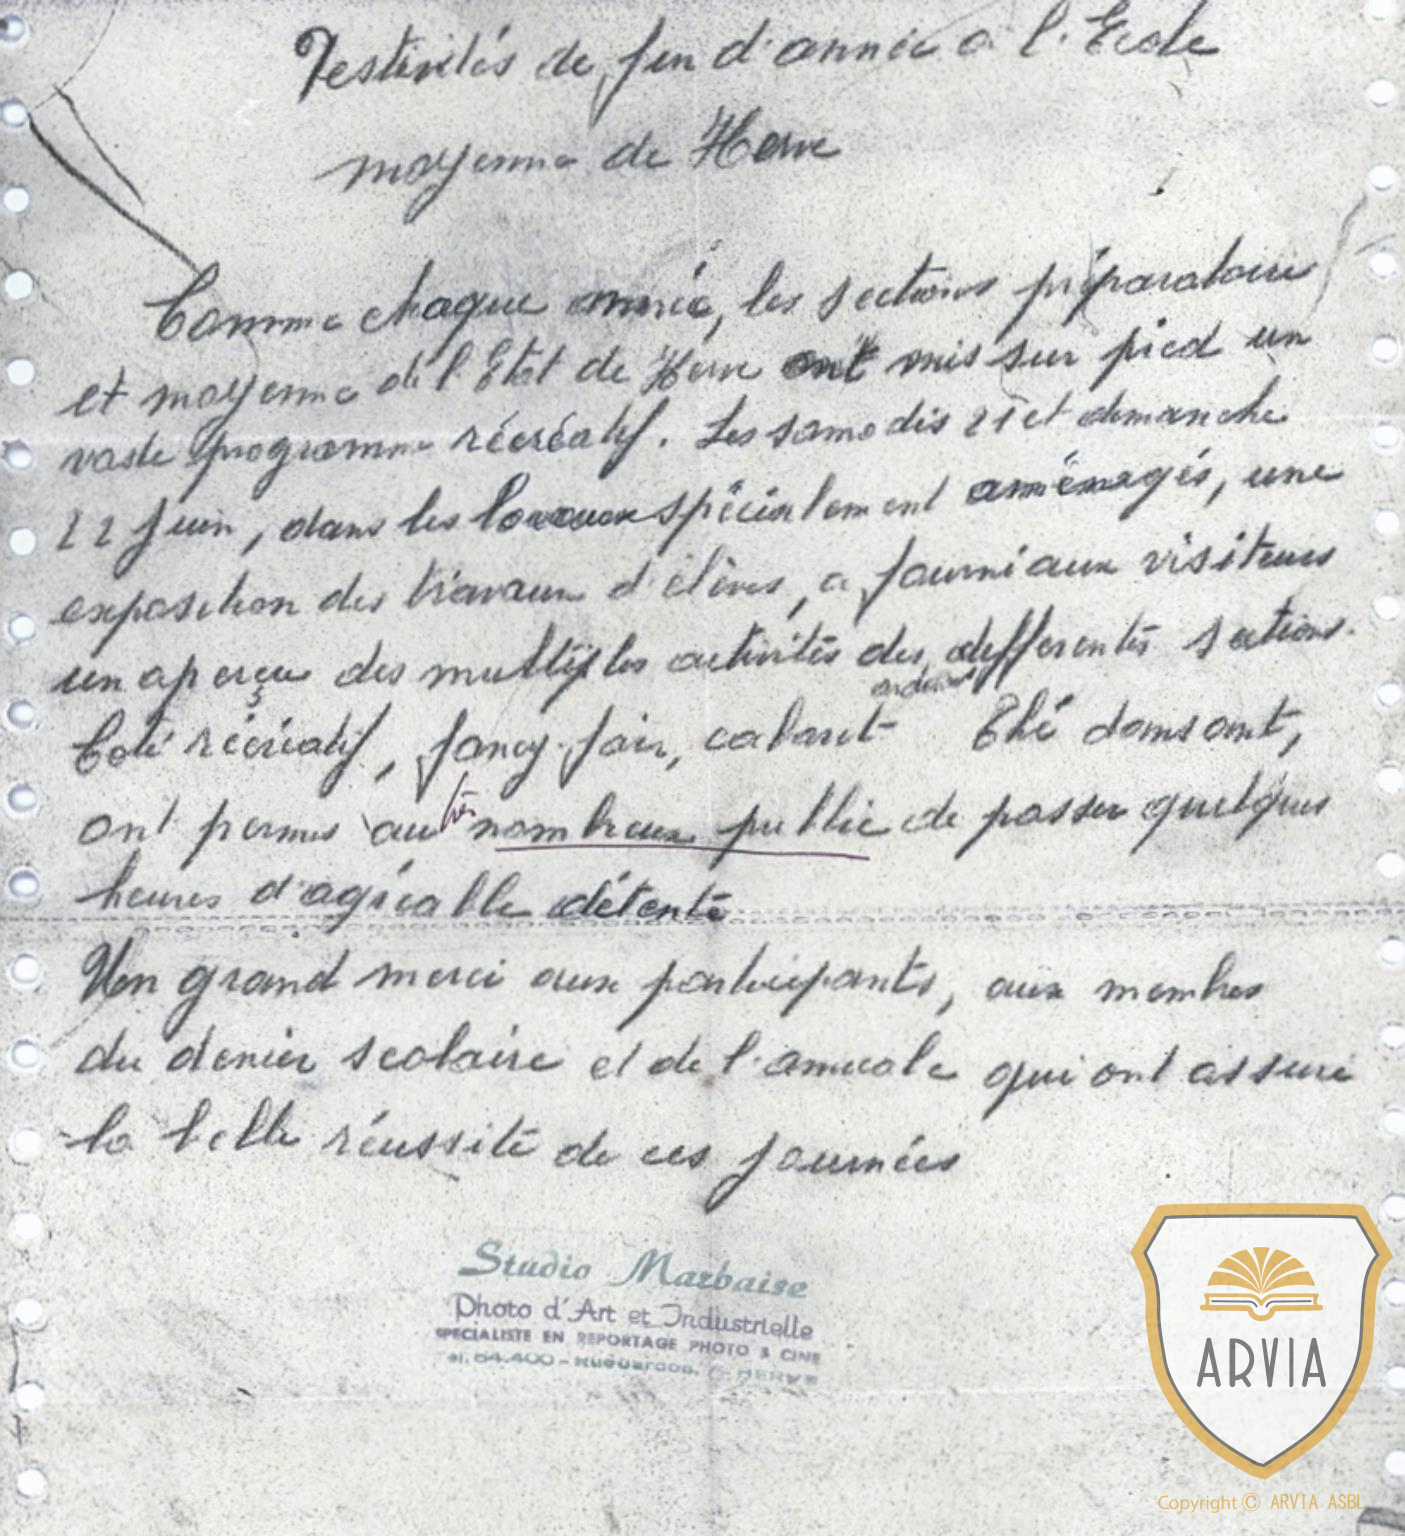 Festivités de fin d'année à l'Ecole
moyenne de Herve
Comme chaque année, les sections préparatoire
et moyenne de l'Etat de Herve ont mis sur pied un
vaste programme récréatif. Les samedis 21 et dimanche
22 juin, dans les locaux spécialement aménagés, une
exposition des travaux d'élèves, a fourni aux visiteurs
un aperçu des multiples activités des differentes sections.
Coté récréatif, fancy-fair, cabaret Thé dansant,
ont permis au très nombreux public de passer quelques
heures d'agréable détente
Un grand merci aux participants, aux membres
du denier scolaire et de l'amicale qui ont assuré
la belle réussite de ces journées
Studio Marbaise
Photo d'Art et Industrielle
SPECIALISTE EN REPORTAGE PHOTO & CINE
el. 64.400 - HERVE
ARVIA
Copyright © ARVIA ASBL